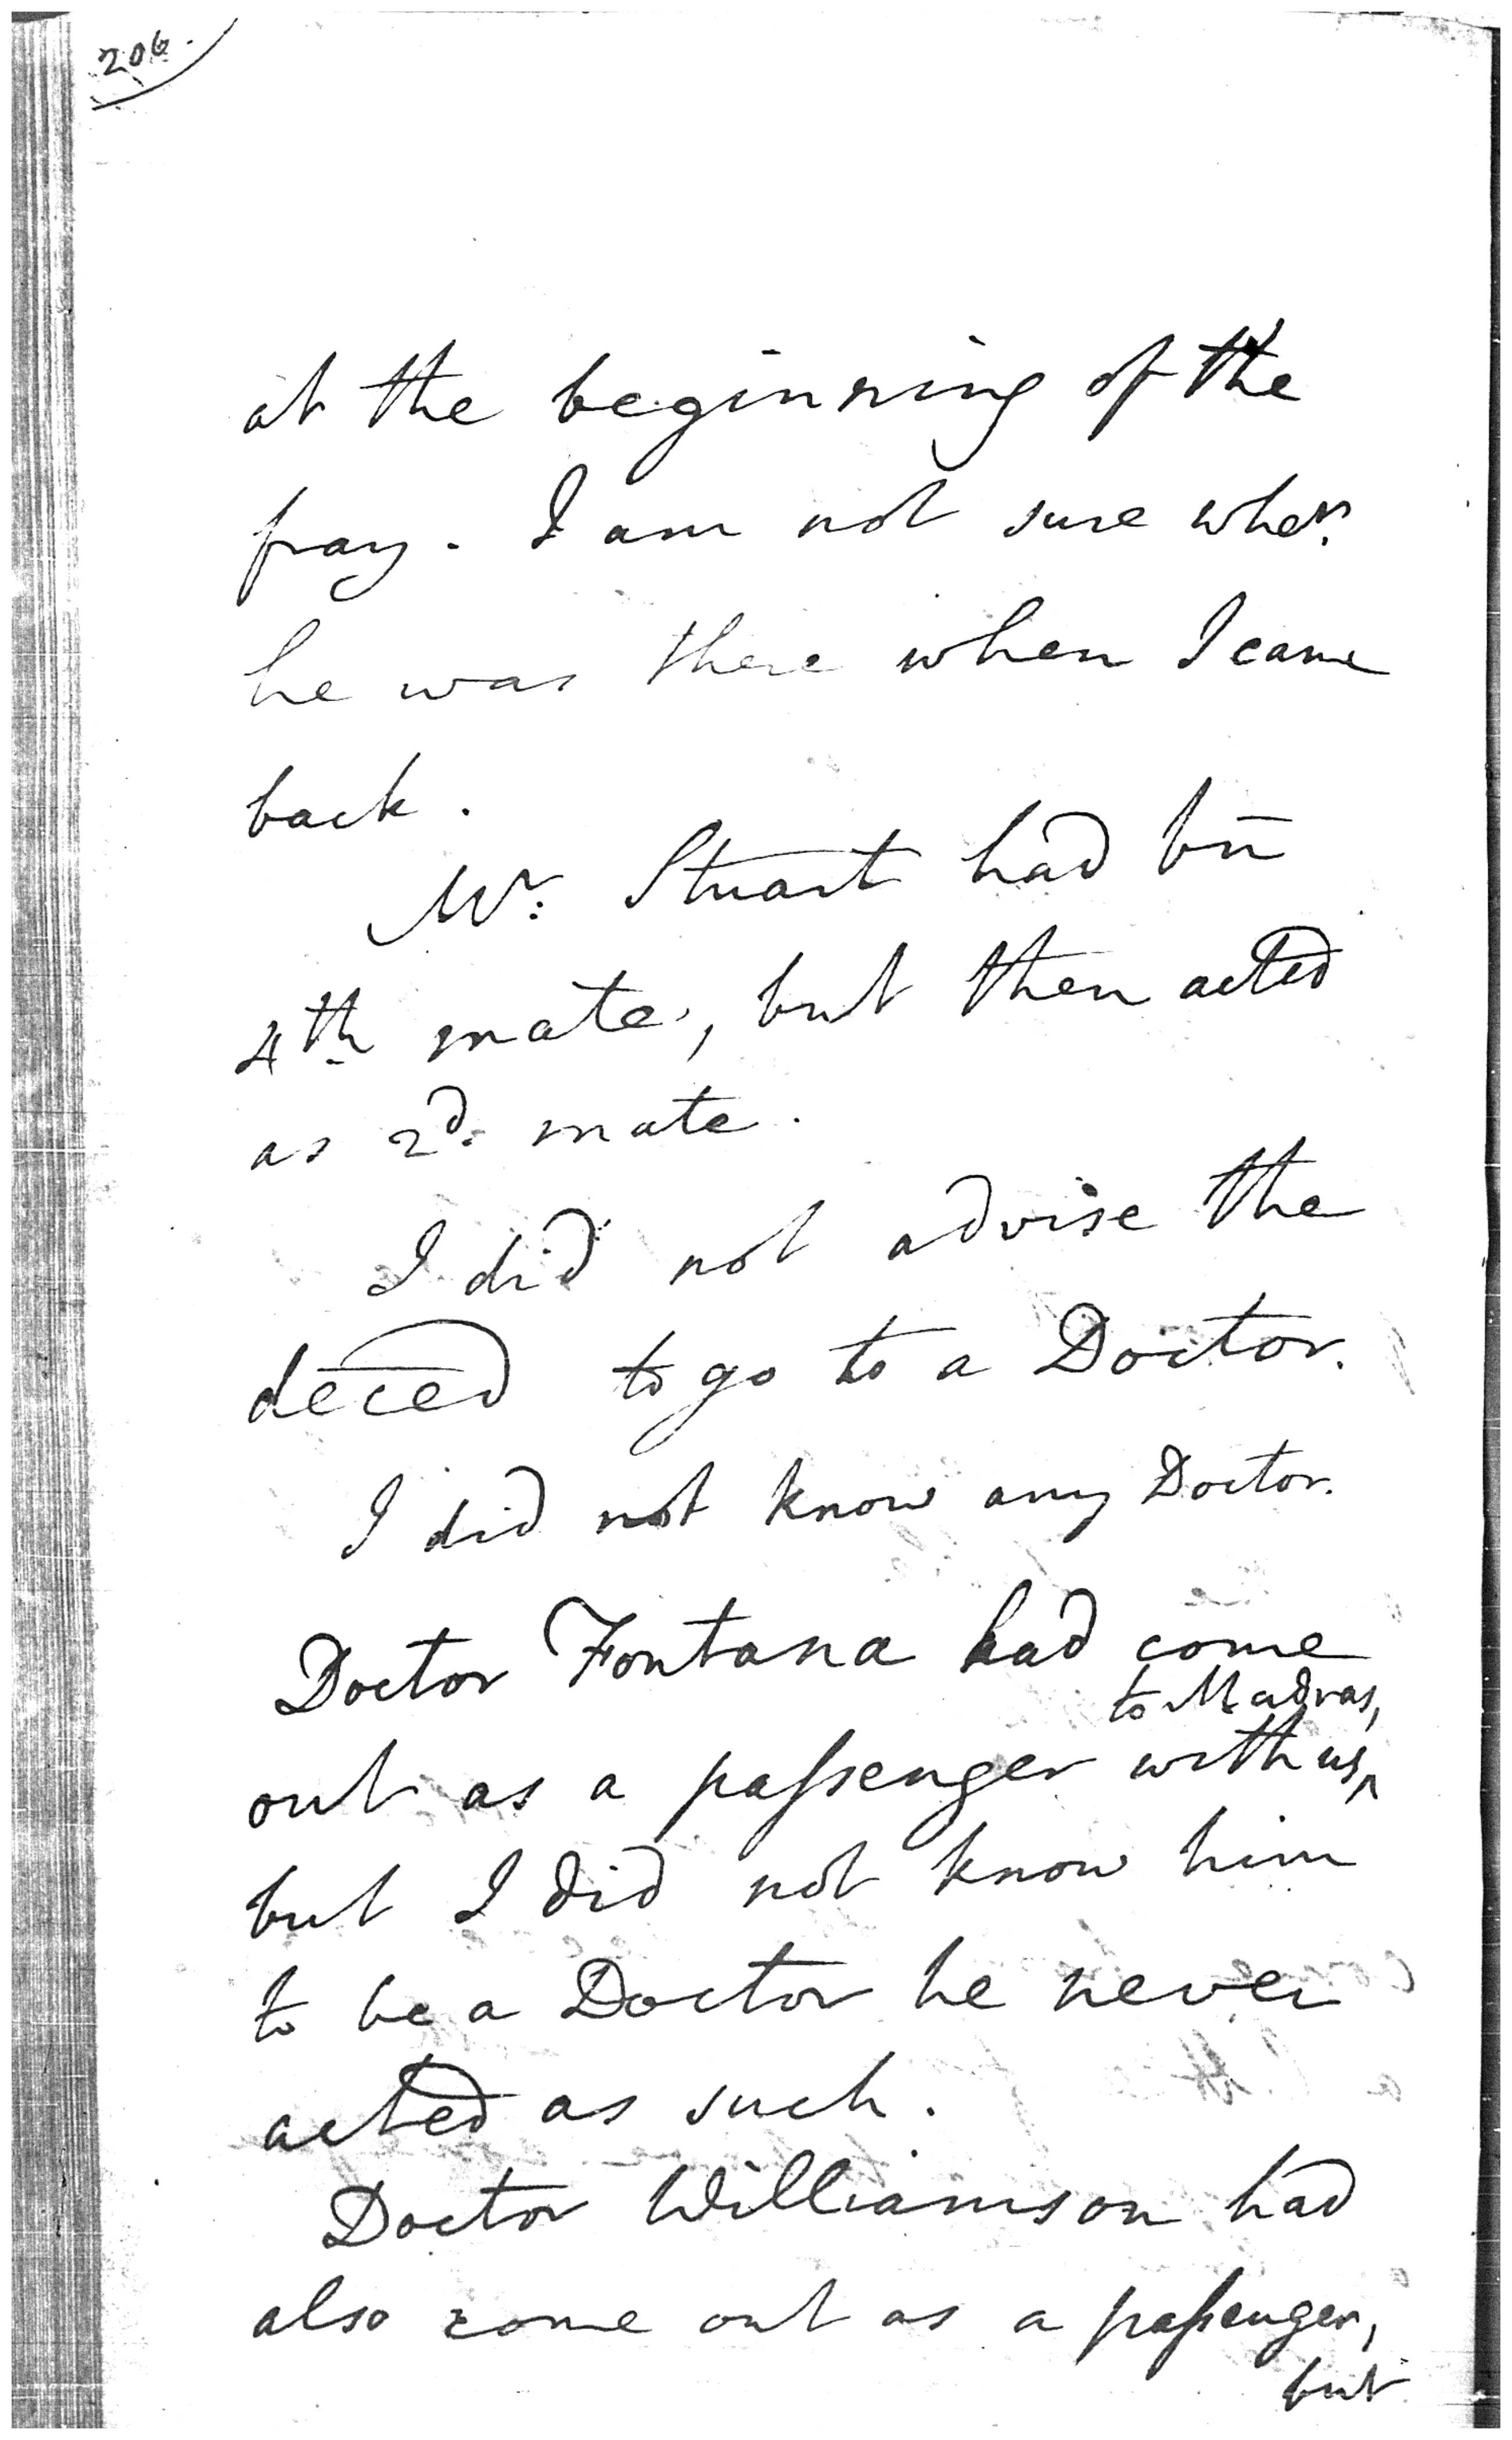 206.
at the beginning of the
fray. I am not sure whe.r
he was there when I came
back.
Mr: Stuart had bn̄
4th mate, but then acted
as 2d. mate.
I did not advise the
deced to go to a Doctor.
I did not know any Doctor.
Doctor Fontana had come
to Madras,
out as a paſsenger with us,^
but I did not know him
to be a Doctor he never
acted as such.
Doctor Williamson had
also come out as a paſsenger,
but